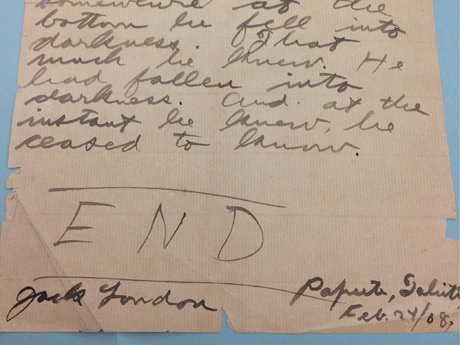 somewhere at the
bottom he fell into
darkness. That
much he knew. He
had fallen into
darkness. And at the
instant he knew, he
ceased to know.
END
Jack London
Papeete, Tahiti
Feb. 24/08.